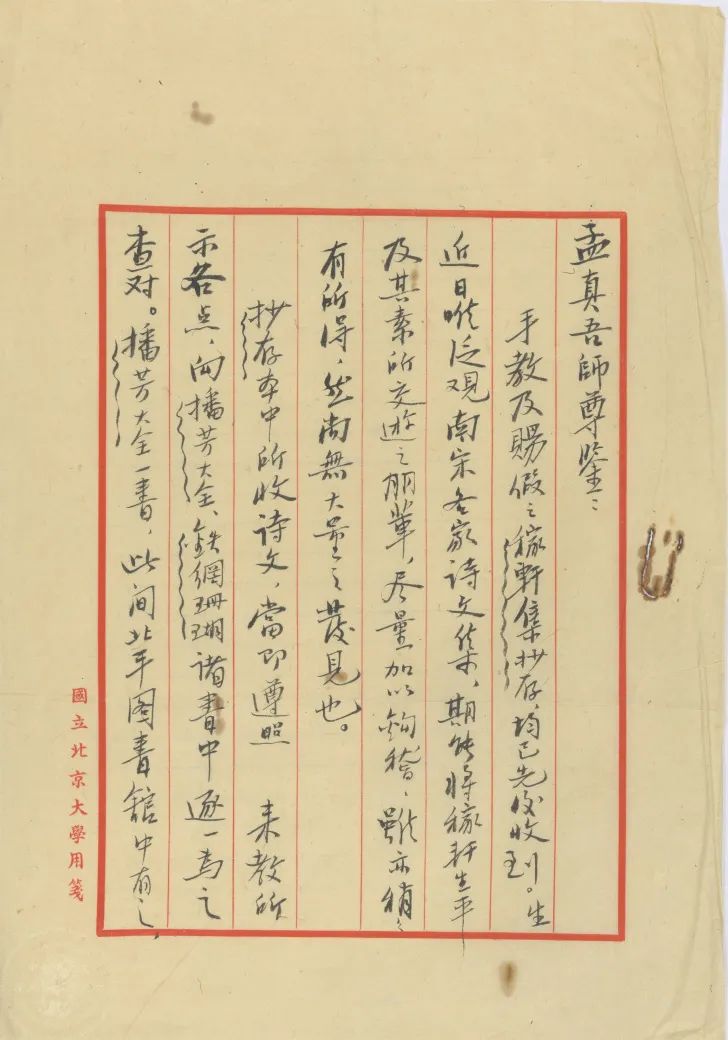 孟真吾師尊鑒：
手教及賜假之稼軒集抄存，均已先後收到。生
近日嘗泛观南宋各家詩文集，期能將稼軒生平
及其素所交遊之朋輩，尽量加以鉤稽，雖亦稍々
有所得，然尚無大量之發見也。
抄存本中所收詩文，當即遵照　来教所
示各点，向播芳大全、鉄網珊瑚諸書中逐一為之
查对。播芳大全一書，此间北平图書舘中有之，
國立北京大學用箋